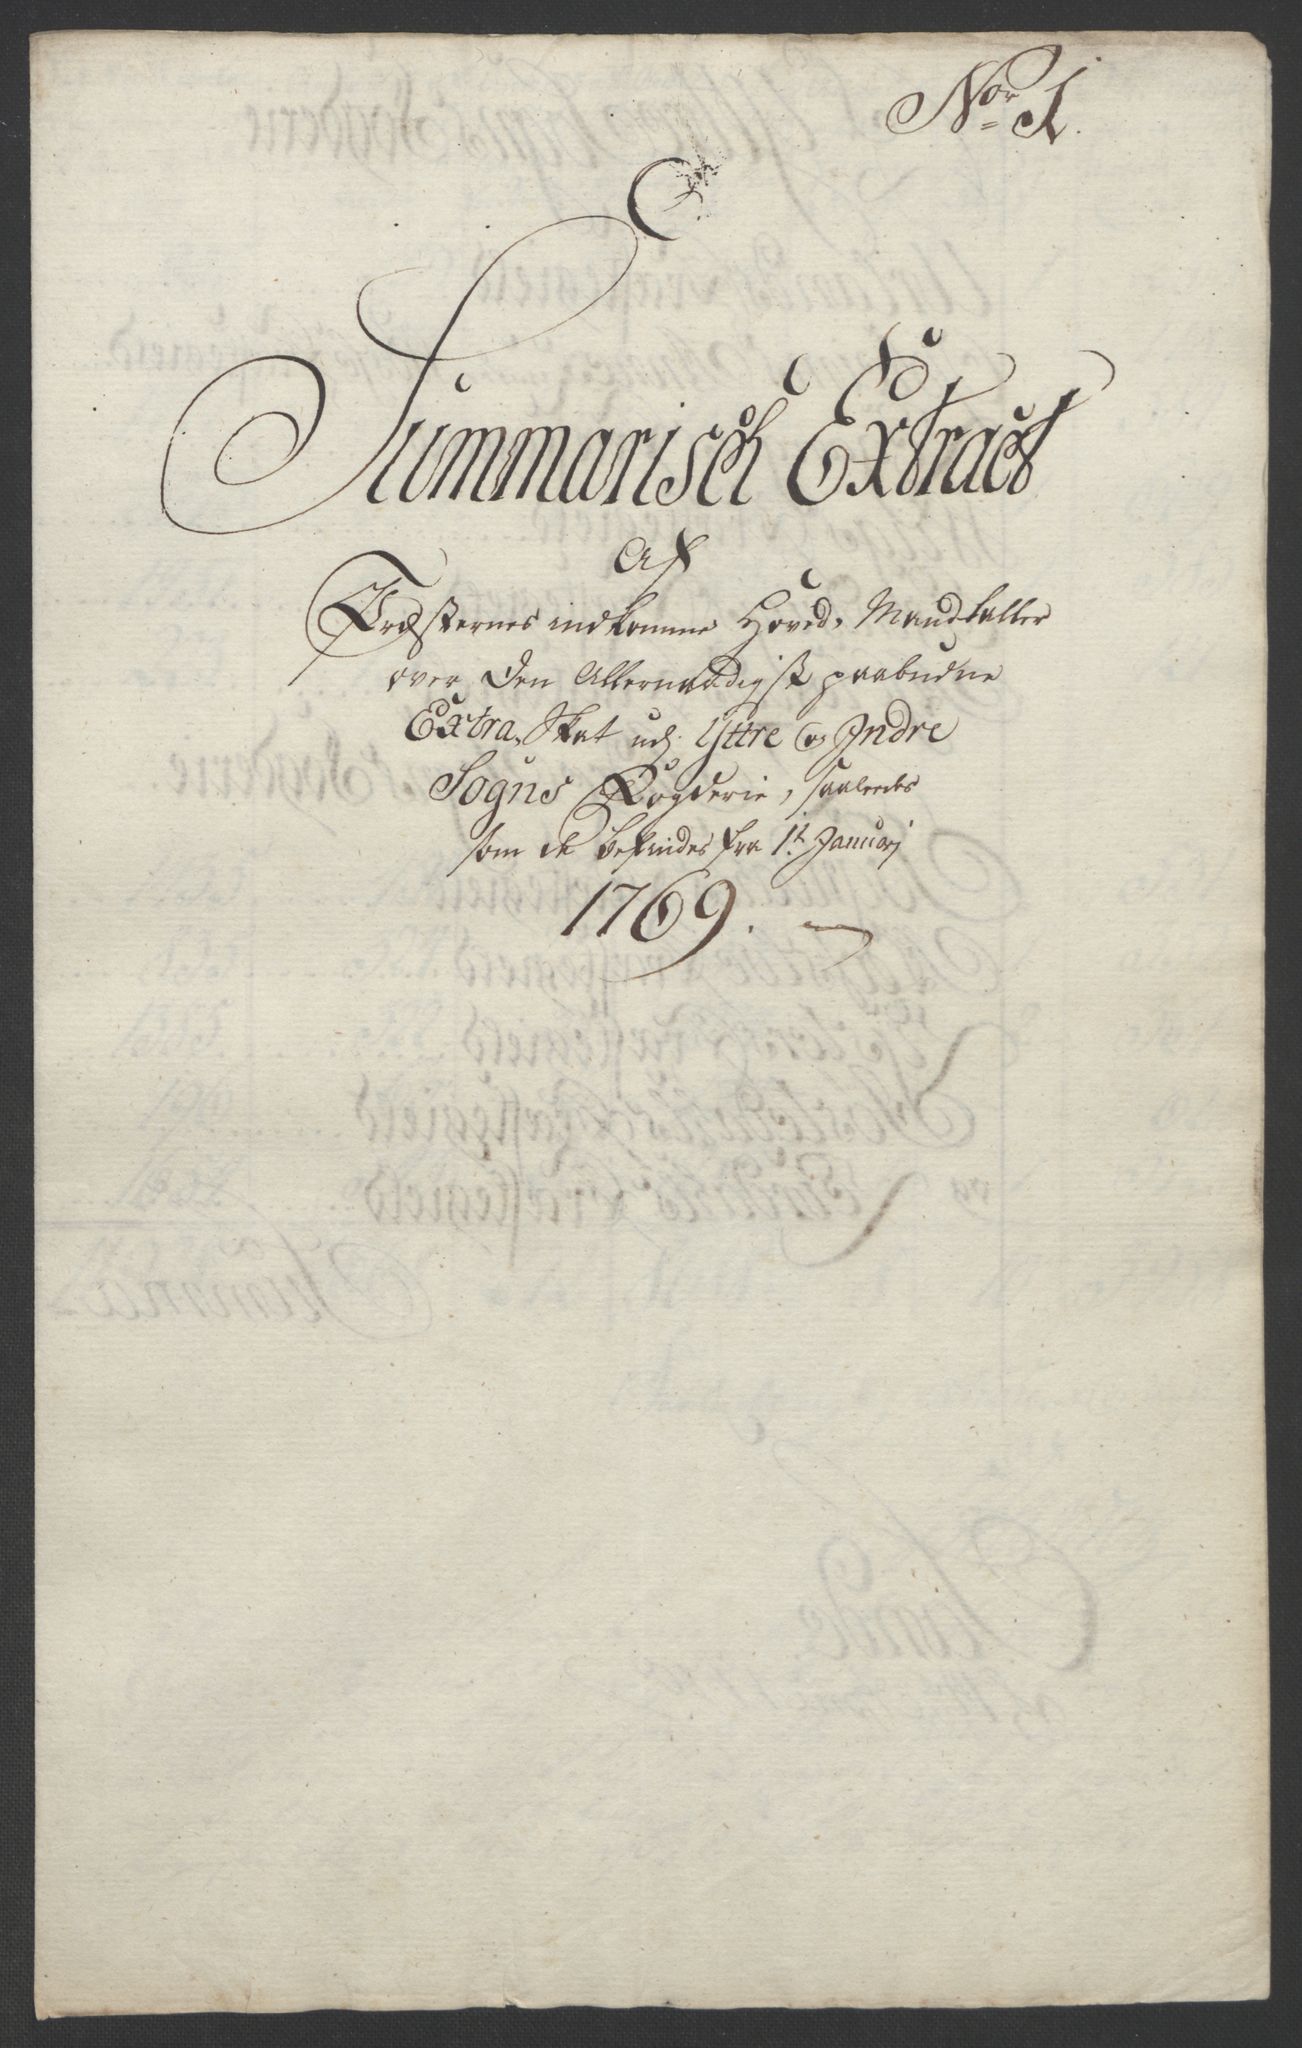 Nor 1.
Summarisch Extract
Af
Præsternes indkomne Hoved, Mandtaller
over den Allernaadigst paabudne
Extra, Skat udj Yttre og Indre
Sogns Fogderie, saaledes
som de befindes fra 1t Januarj
1769.